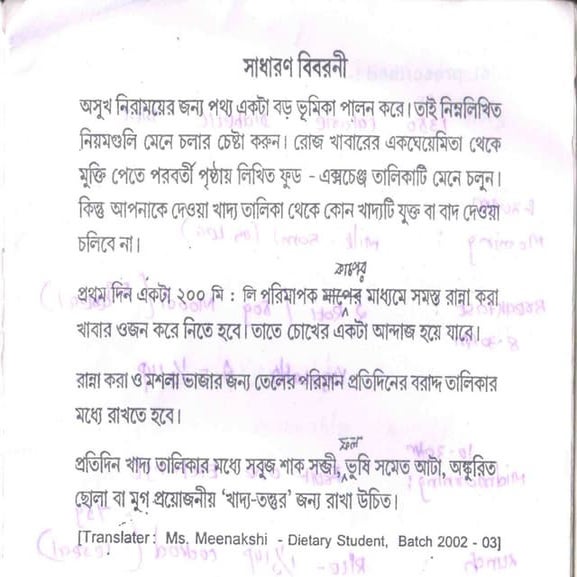 সাধারণ বিবরনী
অসুখ নিরাময়ের জন্য পথ্য একটা বড় ভূমিকা পালন করে। তাই নিম্নলিখিত
নিয়মগুলি মেনে চলার চেষ্টা করুন। রোজ খাবারের একঘেয়েমিতা থেকে
মুক্তি পেতে পরবর্তী পৃষ্ঠায় লিখিত ফুড - এক্সচেঞ্জ তালিকাটি মেনে চলুন।
কিন্তু আপনাকে দেওয়া খাদ্য তালিকা থেকে কোন খাদ্যটি যুক্ত বা বাদ দেওয়া
চলিবে না।
কাপের
প্রথম দিন একটা ২০০ মি : লি পরিমাপক মাপের মাধ্যমে সমস্ত রান্না করা
খাবার ওজন করে নিতে হবে। তাতে চোখের একটা আন্দাজ হয়ে যাবে।
রান্না করা ও মশলা ভাজার জন্য তেলের পরিমান প্রতিদিনের বরাদ্দ তালিকার
মধ্যে রাখতে হবে।
ফল
প্রতিদিন খাদ্য তালিকার মধ্যে সবুজ শাক সব্জী, ভুষি সমেত আটা, অঙ্কুরিত
ছোলা বা মুগ প্রয়োজনীয় ‘খাদ্য-তন্তুর’ জন্য রাখা উচিত।
[Translater : Ms. Meenakshi - Dietary Student, Batch 2002 - 03]